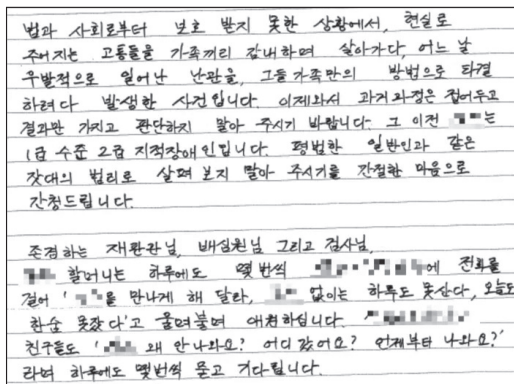 법과 사회로부터 보호 받지 못한 상황에서, 현실로
주어지는 고통들을 가족끼리 감내하며 살아가다, 어느 날
우발적으로 일어난 난관을, 그들 가족만의 방법으로 타결
하려다 발생한 사건입니다. 이제와서 과거과정은 접어두고
결과만 가지고 판단하지 말아 주시기 바랍니다. 그 이전 는
1급 수준 2급 지적장애인입니다. 평범한 일반인과 같은
잣대의 법리로 살펴 보지 말아 주시기를 간절한 마음으로
간청드립니다.
존경하는 재판관님, 배심원님 그리고 검사님,
할머니는 하루에도 몇번씩 에 전화를
걸어 '을 만나게 해 달라, 없이는 하루도 못산다, 오늘도
한숨 못잤다'고 울며불며 애원하십니다.
친구들도 ' 왜 안 나와요? 어디 갔어요? 언제부터 나와요?'
라며 하루에도 몇번씩 묻고 기다립니다.